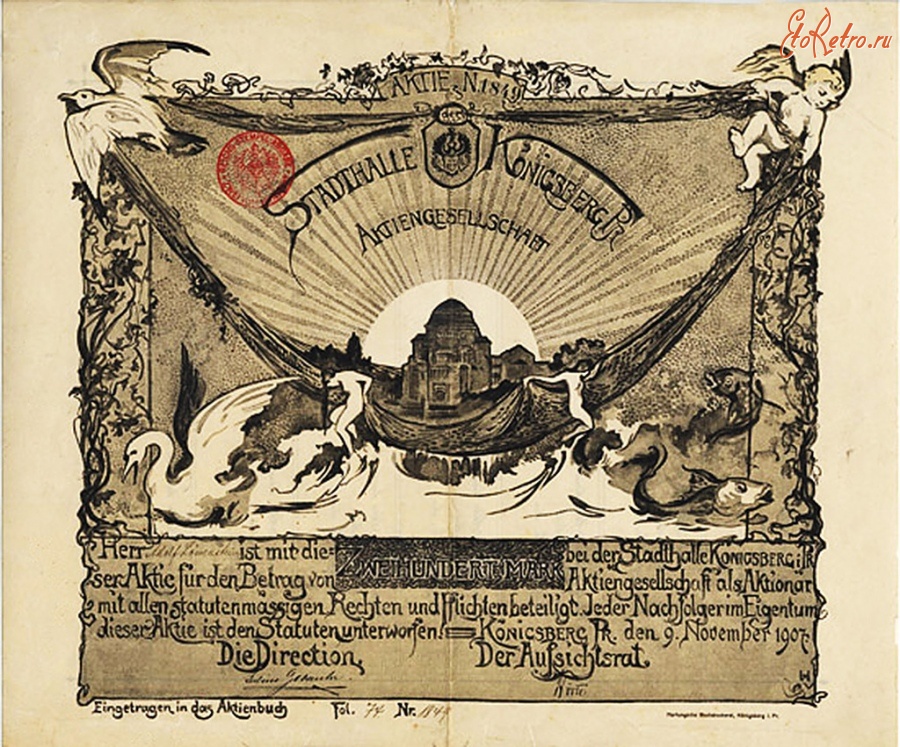 EtoRetro.ru
AKTIE N.1849
der
STADTHALLE KÖNIGSBERG PR
AKTIENGESELLSCHAFT
Herr ist mit die=
ser Aktie für den Betrag von ZWEIHUNDERT MARK bei den Stadthalle KÖNIGSBERG i. PR
Aktiengesellschaft als Aktionär
mit allen statutenmässigen Rechten und Pflichten beteiligt. Jeder Nachfolger im Eigentum
dieser Aktie ist den Statuten unterworfen! = KÖNIGSBERG PR. den 9. November 1907.
Die Direction, Der Aufsichtsrat
Eingetragen in das Aktienbuch Fol. 74 Nr. 1849
Hartungsche Buchdruckerei, Königsberg i. Pr.